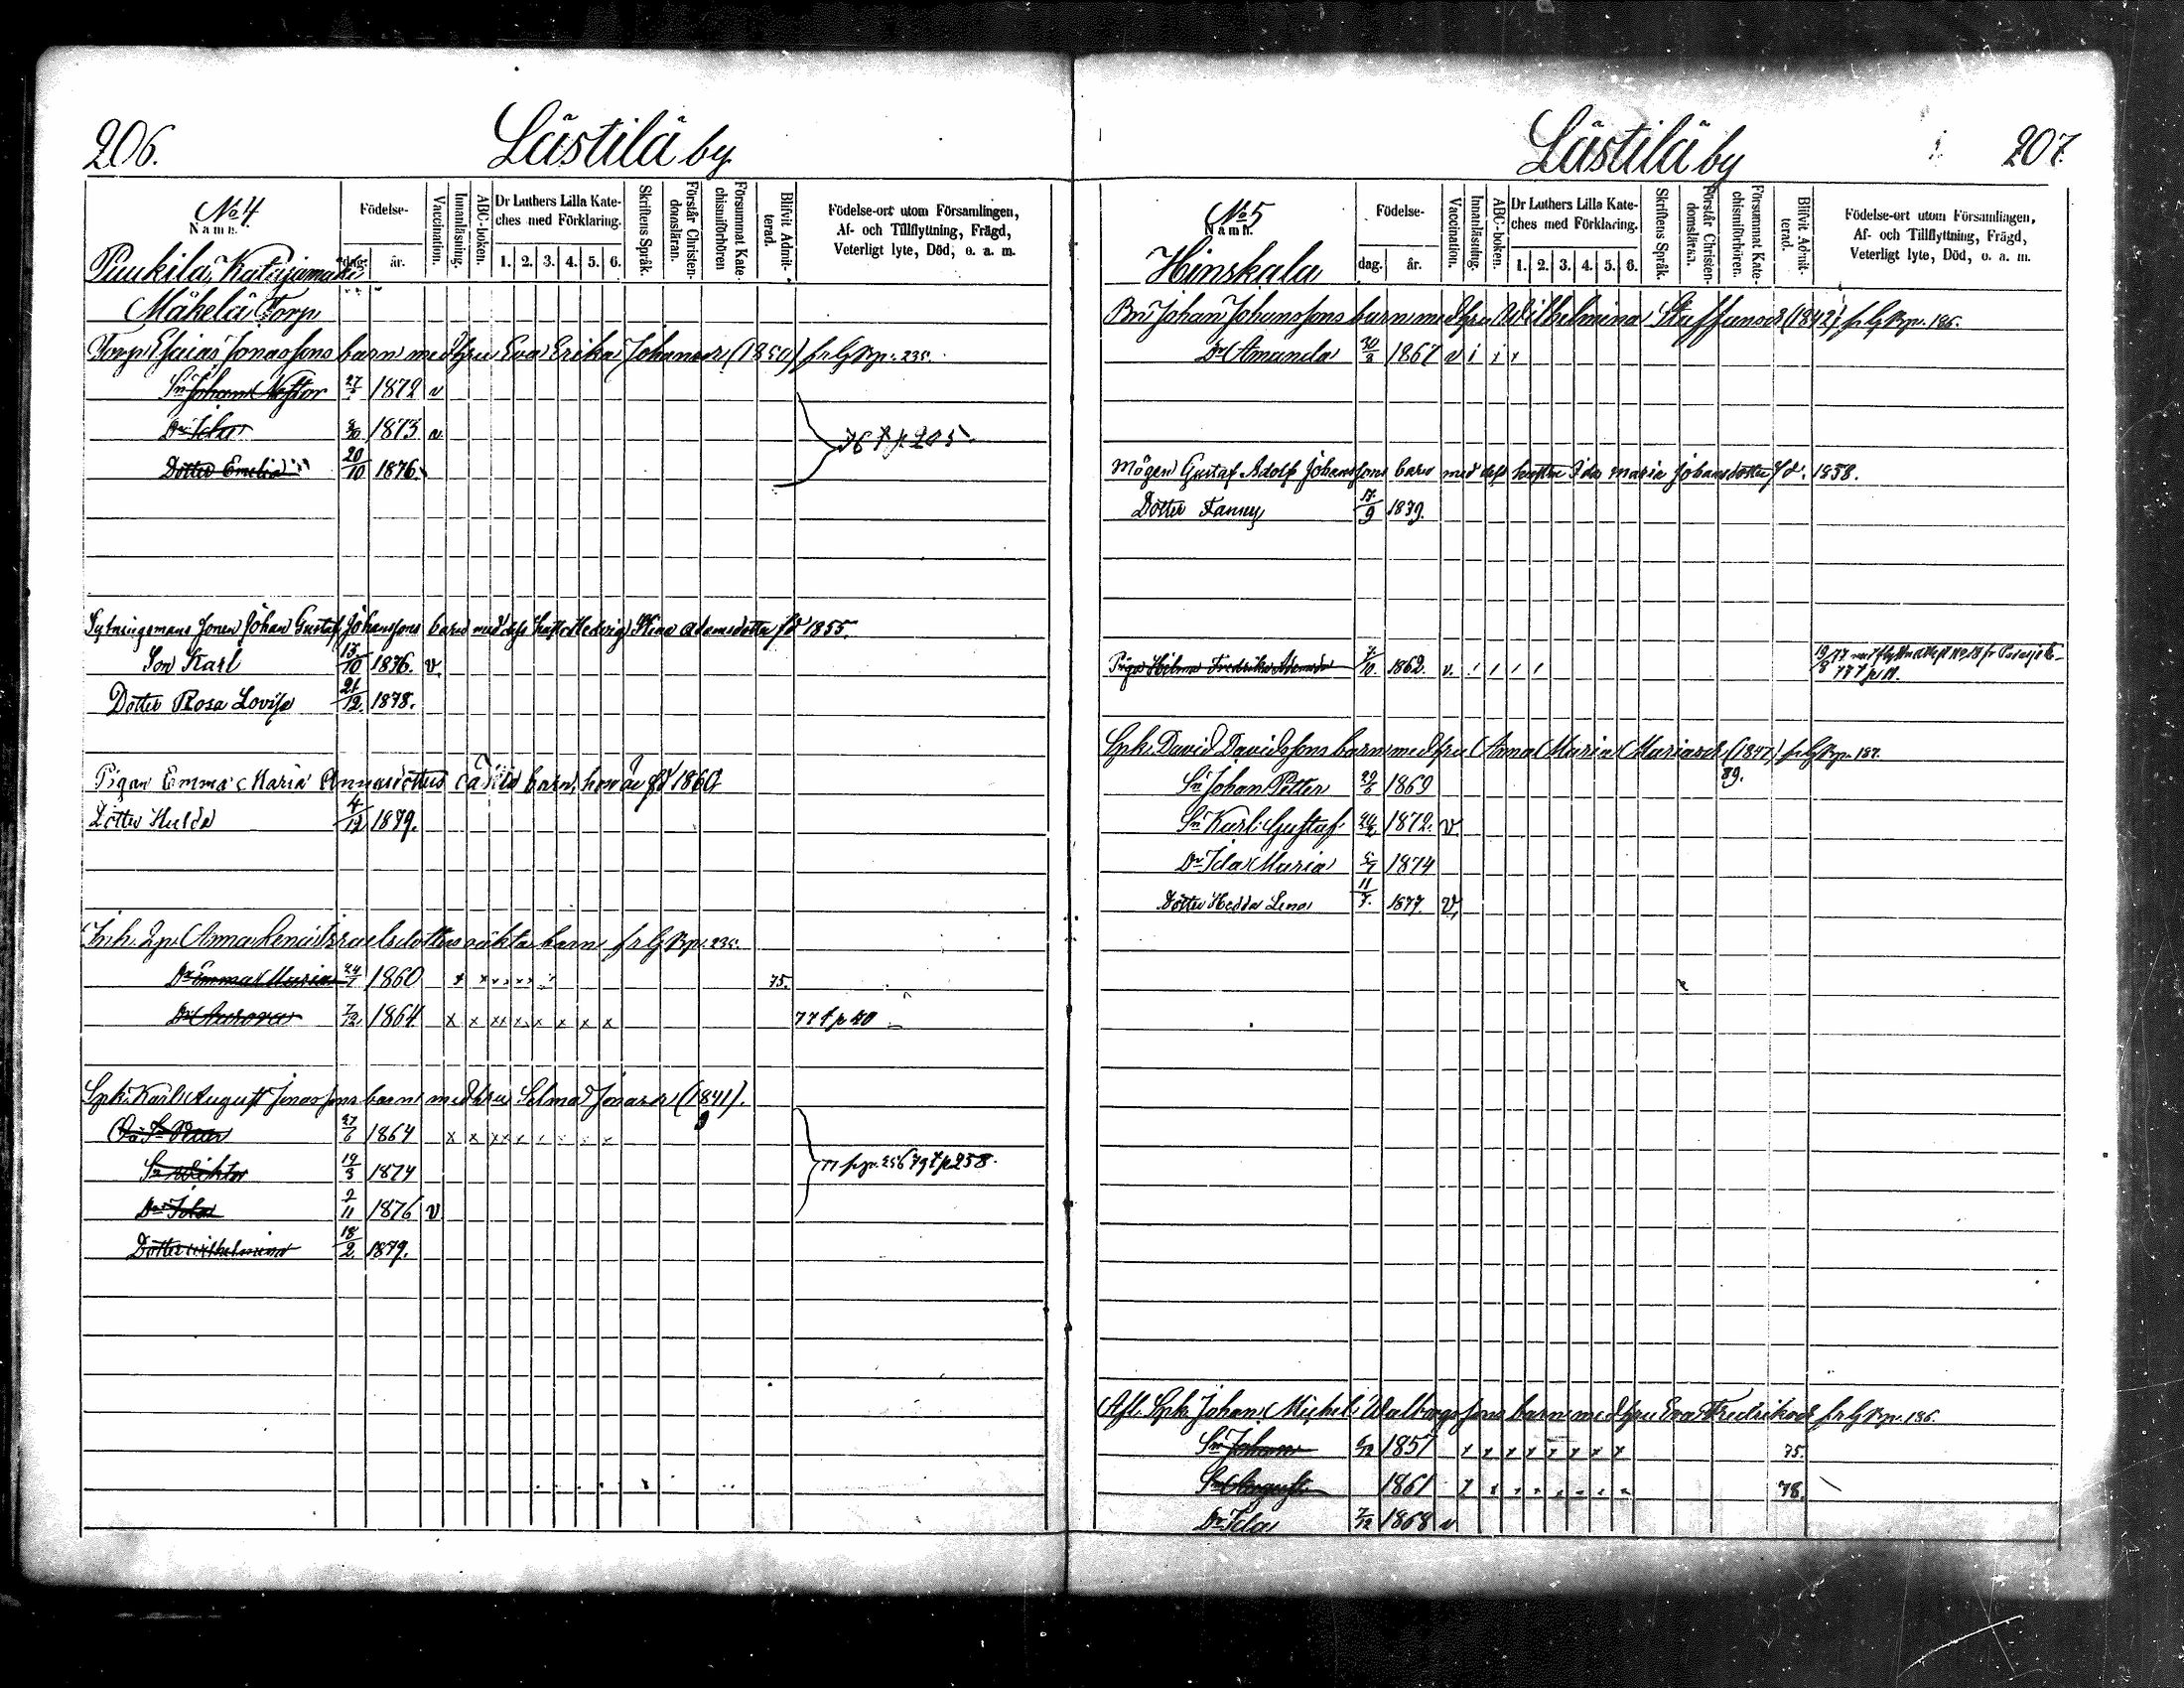 206.
Lästilä by
No 4
Namn.
Födelse-
dag.
år.
Vaccination.
Innanläsning.
ABC-boken.
Dr Luthers Lilla Kate-
ches med Förklaring.
1. 2. 3. 4. 5. 6.
Skriftens Språk.
Förstår Christen-
domsläran.
Försummat Kate-
chismiförhören
Blifvit Admit-
terad.
Födelse-ort utom Församlingen,
Af- och Tillflyttning, Frägd,
Veterligt lyte, Död, o. a. m.
Puukila, Katajamäki
Mäkelä Torp
Torp. Esaias Jonassons barn med hru Eva Erika Johansdr (1850) fr G Bp. 235.
Sn Johan Nestor 27 1872 v
Dr Ida 1873 v
Dotter Emelia 20/10 1876.
76 t p 205
Sytningsmans sonen Johan Gustaf Johanssons barn med dess hustr Hedvig Stina Adamsdotter fd 1855.
Son Karl 13/10 1876. v
Dotter Rosa Lovisa 21/12 1878.
Pigan Emma Maria Annasdotters oäkta barn, hon är fd 1860
Dotter Hulda 4/12 1879.
Inh. Qp. Anna Lena Israelsdotters oäkta barn fr G Bp. 235.
Dr Emma Maria 24/7 1860 x x x x x x 75.
Dr Aurora 7/12 1864 x x xx x x x x x 77 t p 40
Spk. Karl August Jonassons barn med hru Selma Jonasdr (1841).
Oä Sn Petter 27/6 1864 x x xx x x x x x
Sn Wiktor 19/3 1874
77 fr p. 256 79 t p 258.
Dr Ida 2/11 1876 v
Dotter Wilhelmina 18/2. 1879.
Lästilä by
207.
No 5
Namn.
Födelse-
dag.
år.
Vaccination.
Innanläsning.
ABC-boken.
Dr Luthers Lilla Kate-
ches med Förklaring.
1. 2. 3. 4. 5. 6.
Skriftens Språk.
Förstår Christen-
domsläran.
Försummat Kate-
chismiförhören.
Blifvit Admit-
terad.
Födelse-ort utom Församlingen,
Af- och Tillflyttning, Frägd,
Veterligt lyte, Död, o. a. m.
Hinskala
Bn Johan Johanssons barn med hru Wilhelmina Staffansdr (1842) fr G Bp. 186.
Dr Amanda 30 1867 v i i x
Mågen Gustaf Adolf Johanssons barn med dess hustru Ida Maria Johansdotter fd. 1858.
Dotter Fanny 17/9 1879.
Piga Hilma Fredrika 7/10. 1862. v.
77 t p 11.
Spk. David Davidssons barn med hru Anna Maria Mariasdr (1847) fr G Bp. 187.
Sn Johan Petter 29/6 1869 89.
Sn Karl Gustaf 1872. v.
Dr Ida Maria 1874
Dotter Hedda Lena 11/7. 1877. v,
Afl. Spk. Johan Mickel Walborgssons barn med hru Eva Fredriksdr fr G Bp. 186.
Sn Johan 1857 x x x x x x x x 75.
Sn August 1861 78.
Dr Ida 7/12 1868 v